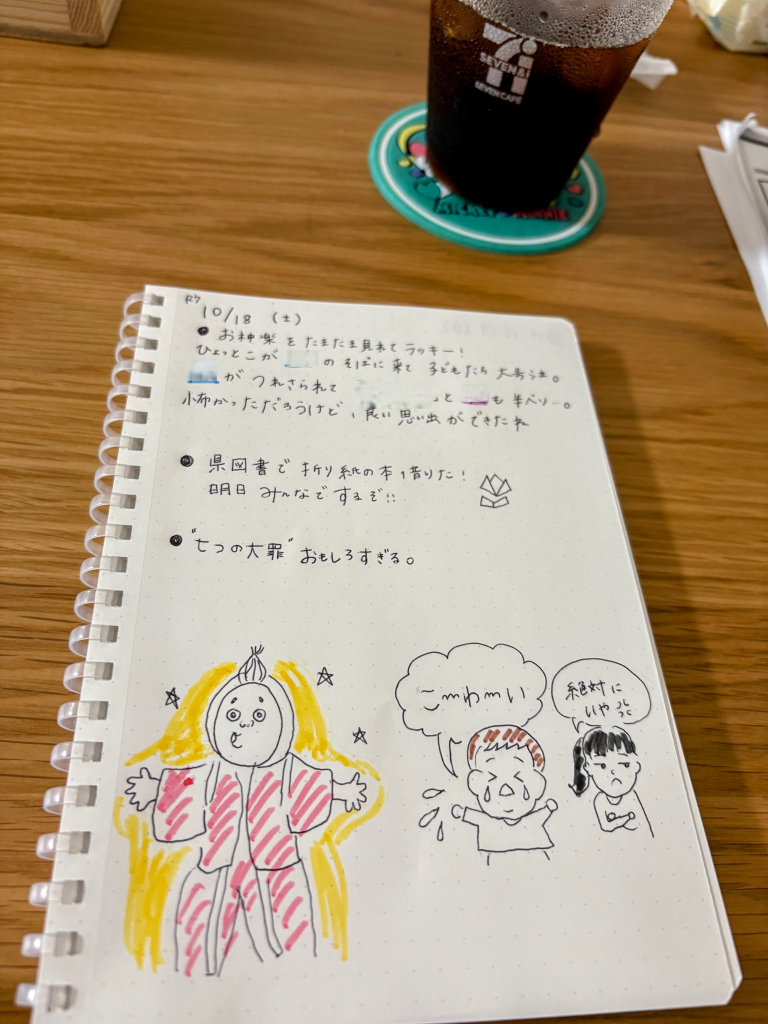 SEVEN&i
SEVEN CAFÉ
MICKEY
R7
10/18 (土)
● お神楽をたまたま見れてラッキー!
ひょっとこが のそばに来て子どもたち大号泣。
がつれさられて 」と も半ベソー。
怖かっただろうけど、良い思い出ができたね
● 県図書で折り紙の本借りた!
明日みんなでするぞ!!
● "七つの大罪"おもしろすぎる。
こmわmい
絶対に
いや